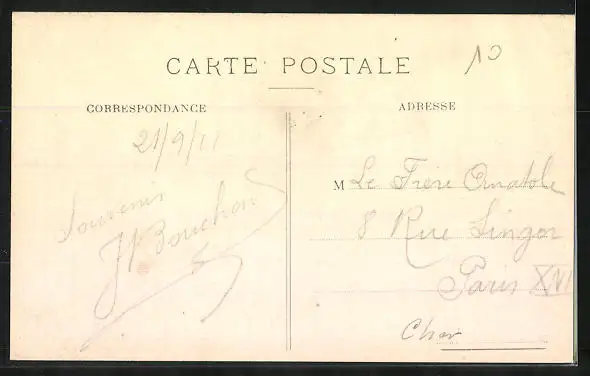 CARTE POSTALE
10
CORRESPONDANCE
ADRESSE
21/9/11
Souvenir
JV Bouchon
M Le Frère Anatole
8 Rue Singer
Paris XVI
Cher